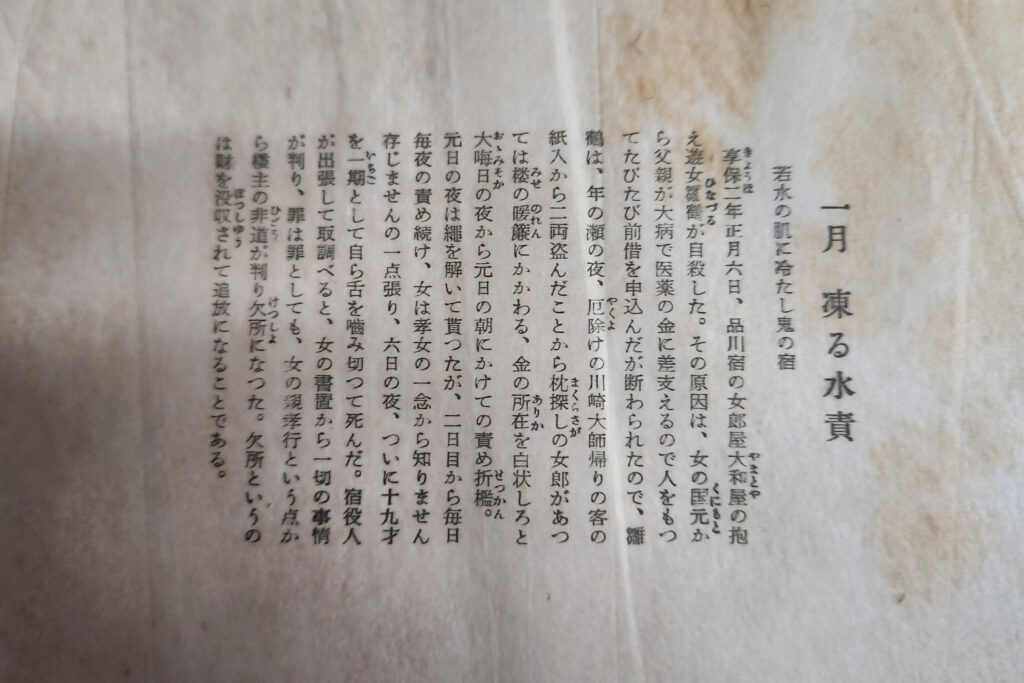 一月　凍る水責
若水の肌に冷たし鬼の宿
享保二年正月六日、品川宿の女郎屋大和屋の抱
え遊女雛鶴が自殺した。その原因は、女の国元か
ら父親が大病で医薬の金に差支えるので人をもつ
てたびたび前借を申込んだが断わられたので、雛
鶴は、年の瀬の夜、厄除けの川崎大師帰りの客の
紙入から二両盗んだことから枕探しの女郎があつ
ては楼の暖簾にかかわる、金の所在を白状しろと
大晦日の夜から元日の朝にかけての責め折檻。
元日の夜は縄を解いて貰つたが、二日目から毎日
毎夜の責め続け、女は孝女の一念から知りません
存じませんの一点張り、六日の夜、ついに十九才
を一期として自ら舌を噛み切つて死んだ。宿役人
が出張して取調べると、女の書置から一切の事情
が判り、罪は罪としても、女の親孝行という点か
ら楼主の非道が判り欠所になつた。欠所というの
は財を没収されて追放になることである。